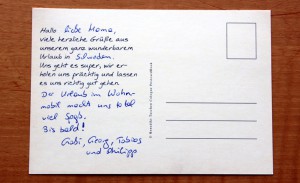 Hallo liebe Mama,
viele herzliche Grüße aus
unserem ganz wunderbarem
Urlaub in Schweden.
Uns geht es super, wir er-
holen uns prächtig und lassen
es uns richtig gut gehen
Der Urlaub im Wohn-
mobil macht uns total
viel Spaß.
Bis bald!
Gabi, Georg, Tobias
und Philipp